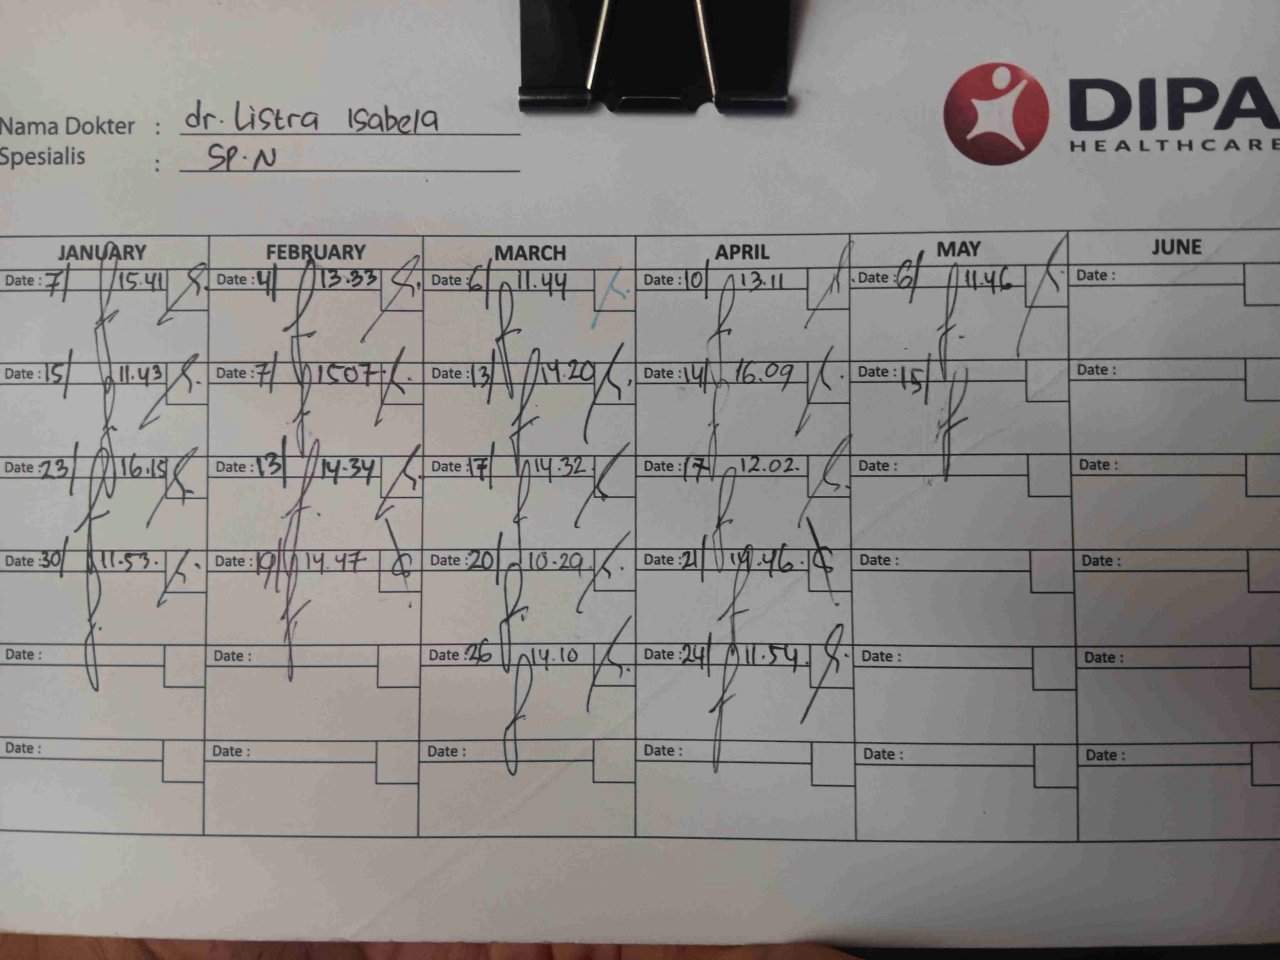 Nama Dokter : dr. Listra Isabela
Spesialis : SP.N
DIPA
HEALTHCARE
JANUARY FEBRUARY MARCH APRIL MAY JUNE
Date : 7/ 15.41 Date : 4/ 13.33 Date : 6/ 11.44 Date : 10/ 13.11 Date : 6/ 11.46 Date :
Date : 15/ 11.43 Date : 7/ 1507 Date : 13/ 14.20 Date : 14/ 16.09 Date : 15/ Date :
Date : 23/ 16.15 Date : 13/ 14.34 Date : 17/ 14.32 Date : 17/ 12.02 Date : Date :
Date : 30/ 11.53 Date : 19/ 14.47 Date : 20/ 10.29 Date : 21/ 19.46 Date : Date :
Date : Date : Date : 26 14.10 Date : 24/ 11.54 Date : Date :
Date : Date : Date : Date : Date : Date :